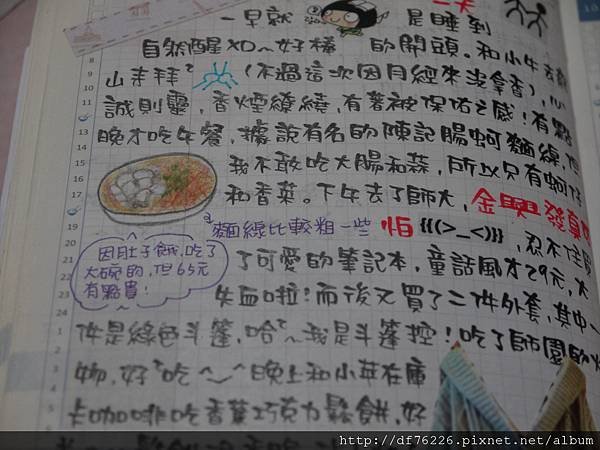 一早就 是睡到
自然醒XD~好棒 的開頭。和小牛去
山羊拜拜 (不過這次因月經來沒拿香),心
誠則靈,香煙繚繞,有著被保佑之感!有點
晚才吃午餐,據說有名的陳記腸蚵麵線,但
我不敢吃大腸和蒜,所以只有蚵仔
和香菜。下午去了師大,金興發真
麵線比較粗一些
怕 {{{(>_<)}}},忍不住買
因肚子餓,吃了
大碗的,但65元
有點貴!
了可愛的筆記本,童話風才29元,大
失血啦!而後又買了二件外套,其中一
件是綠色斗篷,哈~我是斗篷控!吃了師園的
物,好吃^_^晚上和小英在庫
卡咖啡吃香蕉巧克力鬆餅,好
http://df76226.pixnet.net/album